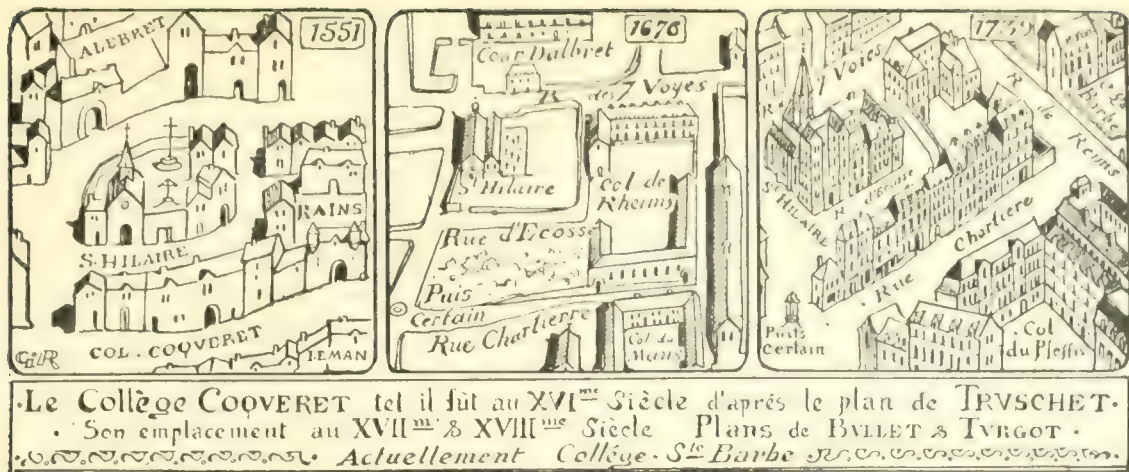 1551
ALEBRET
S. HILAIRE
RAINS
COL. COQVERET
LEMAN
1676
Cour Dalbret
R. des 7 Voyes
St Hilaire
Col de
Rheims
Rue d'Ecosse
Puis
Certain
Rue Chartierre
Col du
Mans
1739
7 Voies
R. de Reims
Ste Barbe
St HILAIRE
R. d'Ecosse
Rue Chartiere
Puits
Certain
Col
du Plessis
·Le Collège COQVERET tel il fût au XVIme Siècle d'aprés le plan de TRVSCHET·
· Son emplacement au XVIIme & XVIIIme Siècle Plans de BVLLET & TVRGOT ·
Actuellement Collége · Ste Barbe